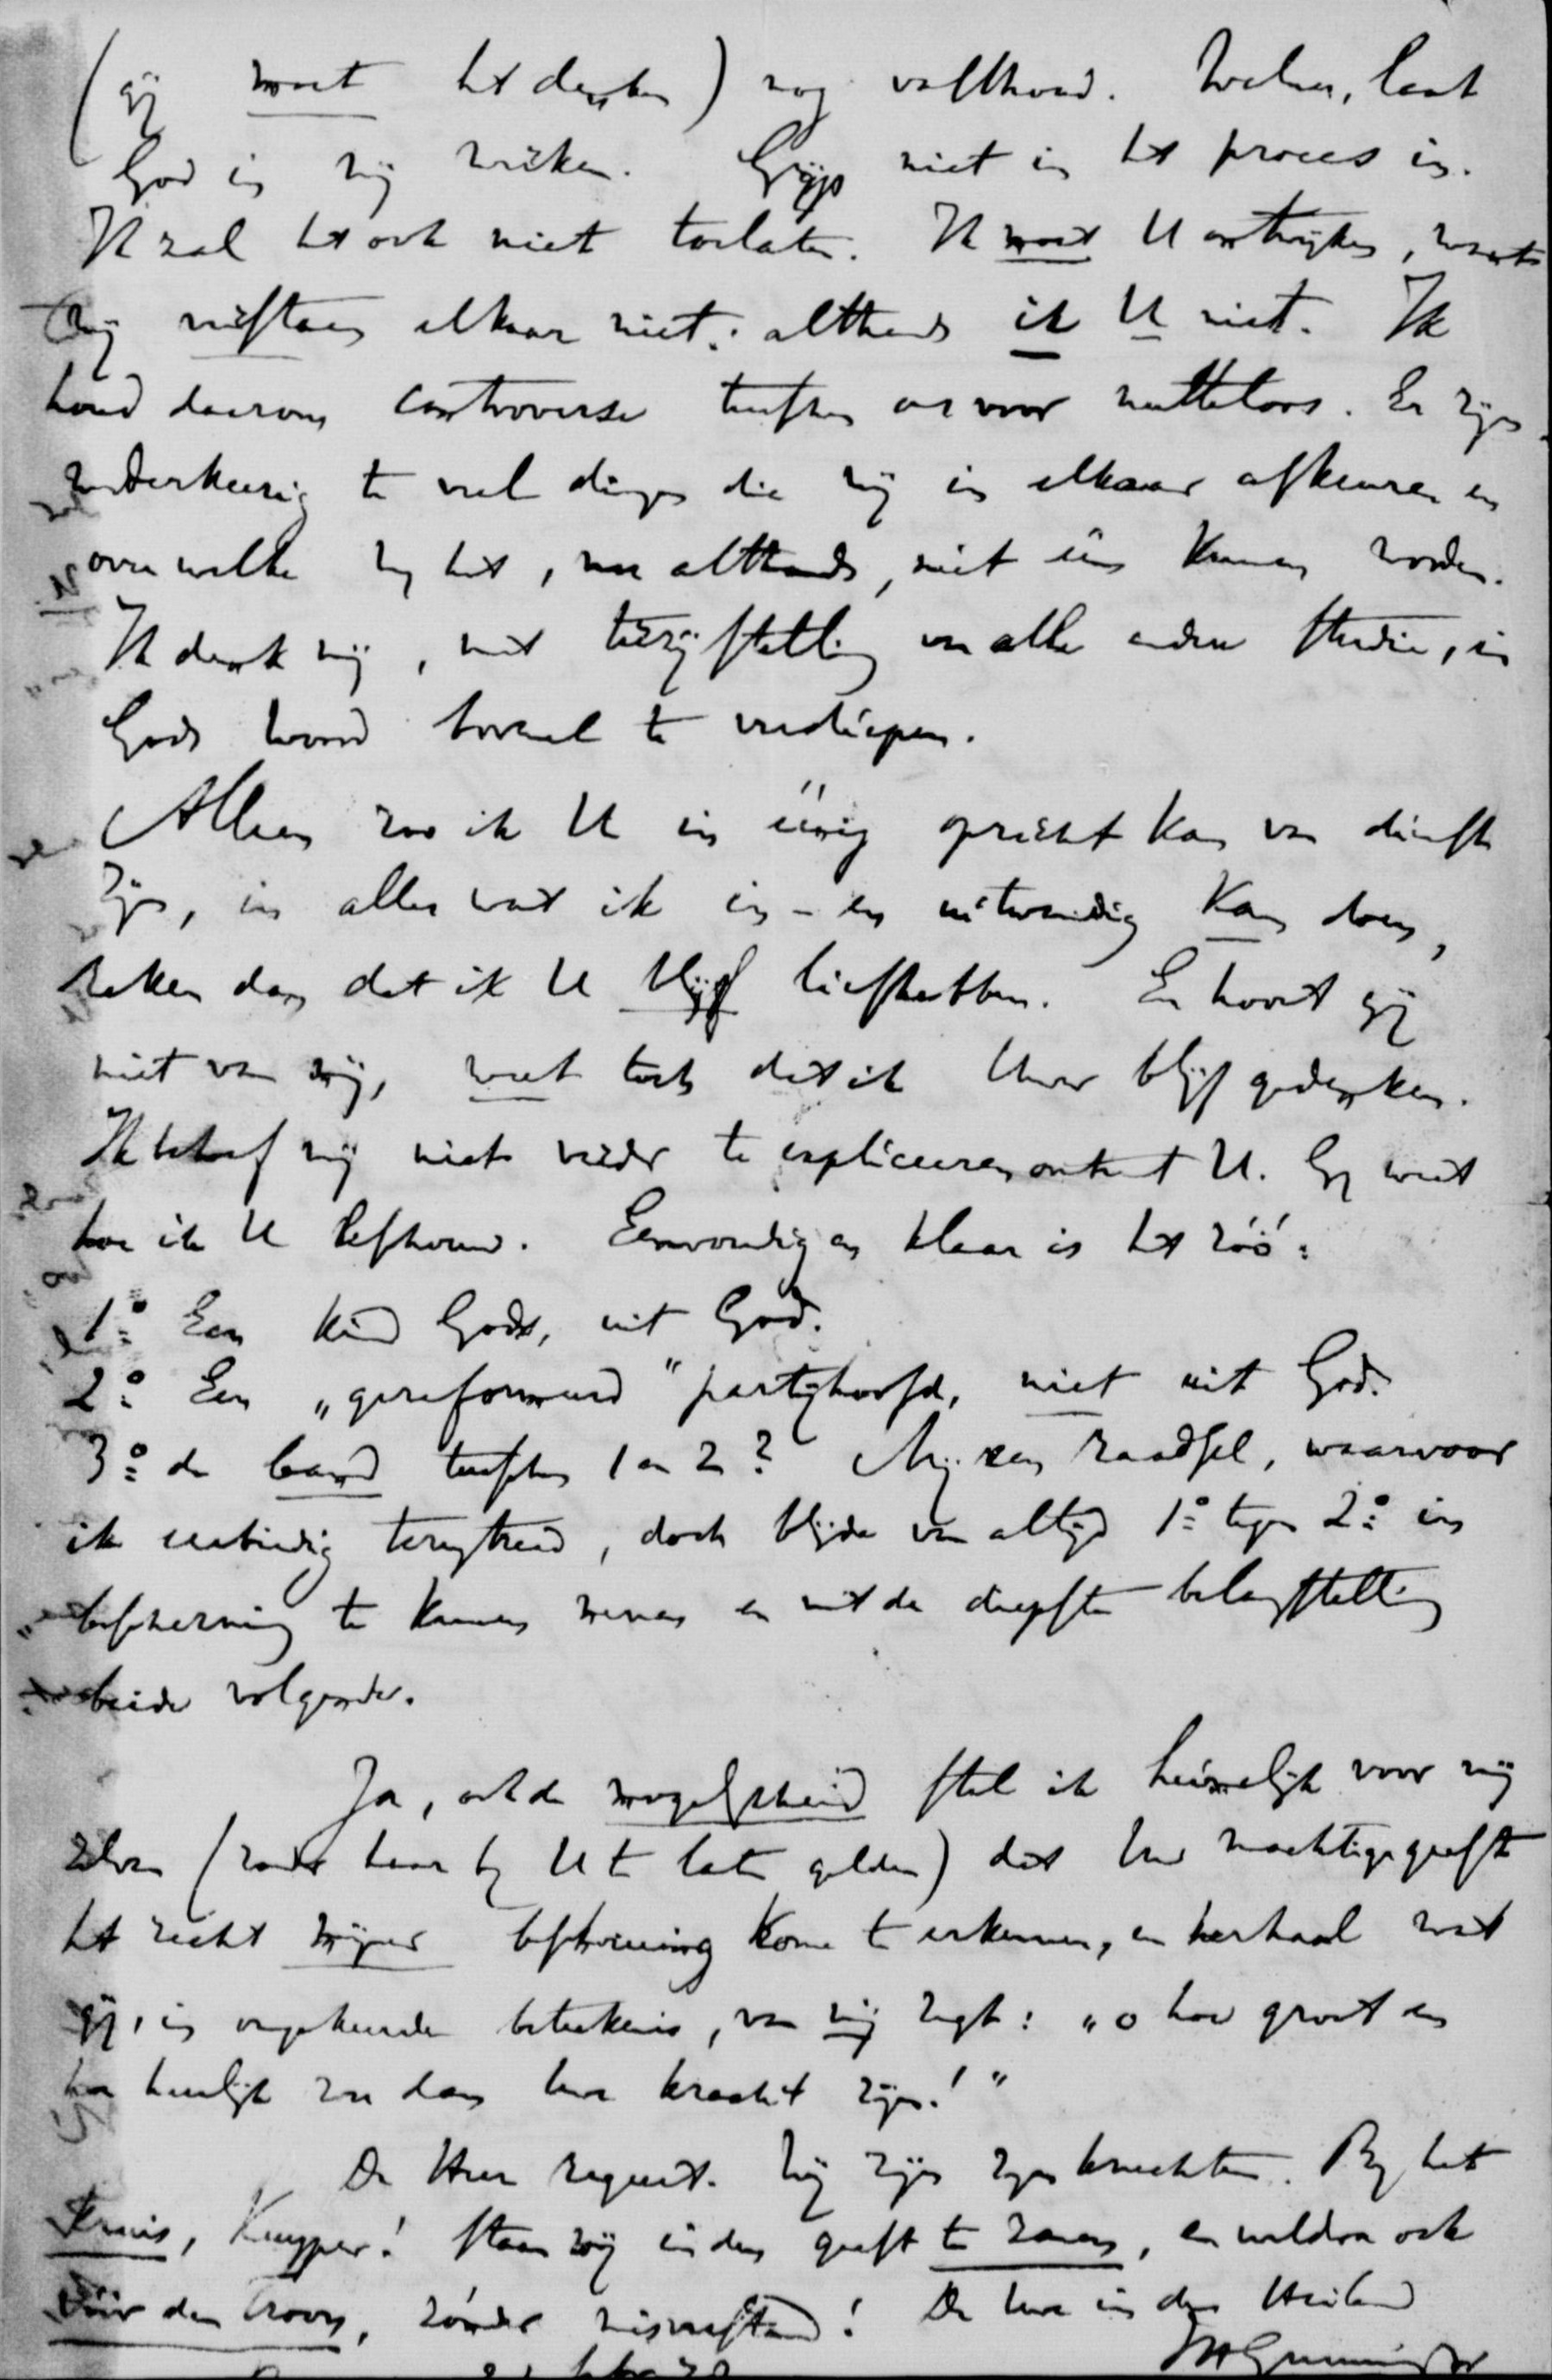 (gij moet het denken) nog volkhoud. Welnu, laat
God in mij werken. Grijp niet in het proces in.
Ik zal het ook niet toelaten. Ik moet U ontwijken, want
wij verstaan elkaar niet: althands ik U niet. Ik
houd daarom controverse tusschen ons voor nutteloos. Er zijn
wederkeerig te veel dingen die wij in elkaar afkeuren en
over welke wij het, nu althands, niet eens kunnen worden.
Ik denk mij, met terzijstelling van alle andere studie, in
Gods woord boveal te verdiepen.
Alleen zoo ik U in eenig opzicht kan van dienst
zijn, in alles wat ik in- en uitwendig kan doen,
reken dan dat ik U blijf liefhebben. En hoort gij
niet van mij, weet toch dat ik Uwer blijf gedenken.
Ik behoef mij niet verder te expliceeren omtrent U. Gij weet
hoe ik U liefhoud. Eenvoudig en klaar is het zóó:
1º Een kind Gods, uit God.
2º Een „gereformeerd" partijhoofd, niet uit God.
3º de band tusschen 1 en 2? Mij een raadsel, waarvoor
ik eerbiedig terugtreed, doch blijde van altijd 1º tegen 2º in
bescherming te kunnen nemen en met de diepste belangstelling
beide volgende.
Ja, ook de mogelijkheid stel ik heimelijk voor mij
zelven (zonder haar bij U te laten gelden) dat Uw machtige geest
het recht mijner beschouwing kome te erkennen, en herhaal wat
gij, in omgekeerde beteekenis, van mij zegt: „o hoe groot en
hoe heerlijk zou dan uwe kracht zijn!"
De Heer regeert. Wij zijn zijn knechten. Bij het
kruis, Kuyper! staan wij in den geest te zamen, en weldra ook
vóór den troon, zónder misverstand! De Uwe in den Heiland
JHGunning Jr